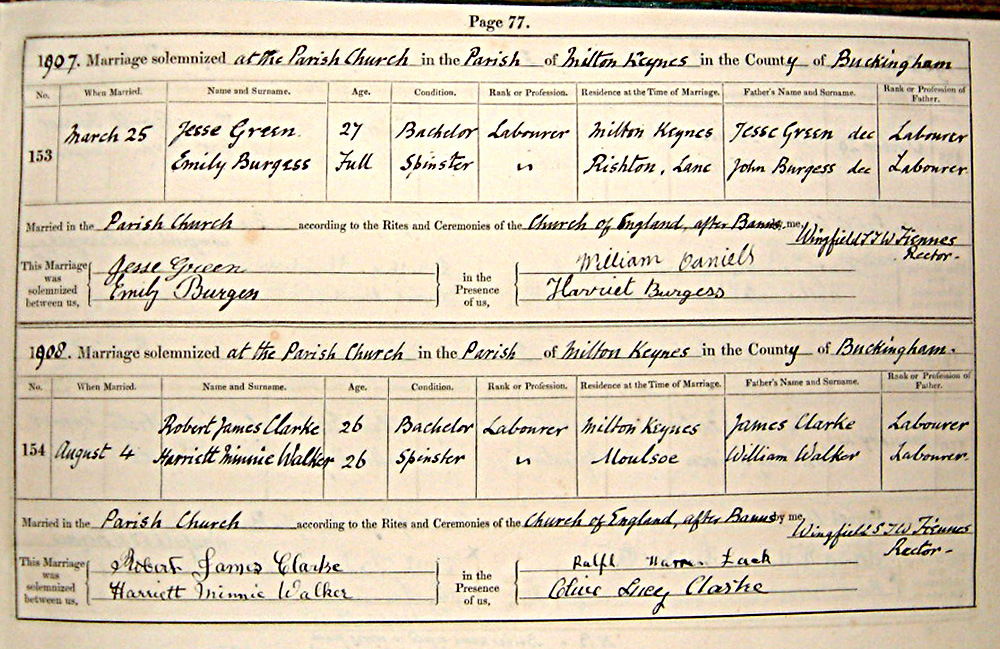 Page 77.
1907. Marriage solemnized at the Parish Church in the Parish of Milton Keynes in the County of Buckingham
No. When Married. Name and Surname. Age. Condition. Rank or Profession. Residence at the Time of Marriage. Father's Name and Surname. Rank or Profession of Father.
March 25 Jesse Green 27 Bachelor Labourer Milton Keynes Jesse Green dec Labourer
153 Emily Burgess Full Spinster " Rishton, Lanc John Burgess dec Labourer
Married in the Parish Church according to the Rites and Ceremonies of the Church of England, after Banns, by me,
Wingfield S T W Fiennes
Rector-
This Marriage was solemnized between us,
Jesse Green
Emily Burgess
in the Presence of us,
William Daniells
Harriet Burgess
1908. Marriage solemnized at the Parish Church in the Parish of Milton Keynes in the County of Buckingham.
No. When Married. Name and Surname. Age. Condition. Rank or Profession. Residence at the Time of Marriage. Father's Name and Surname. Rank or Profession of Father.
Robert James Clarke 26 Bachelor Labourer Milton Keynes James Clarke Labourer
154 August 4 Harriett Minnie Walker 26 Spinster " Moulsoe William Walker Labourer
Married in the Parish Church according to the Rites and Ceremonies of the Church of England, after Banns by me,
Wingfield S T W Fiennes
Rector-
This Marriage was solemnized between us,
Robert James Clarke
Harriett Minnie Walker
in the Presence of us,
Ralph Warren
Olive Lucy Clarke